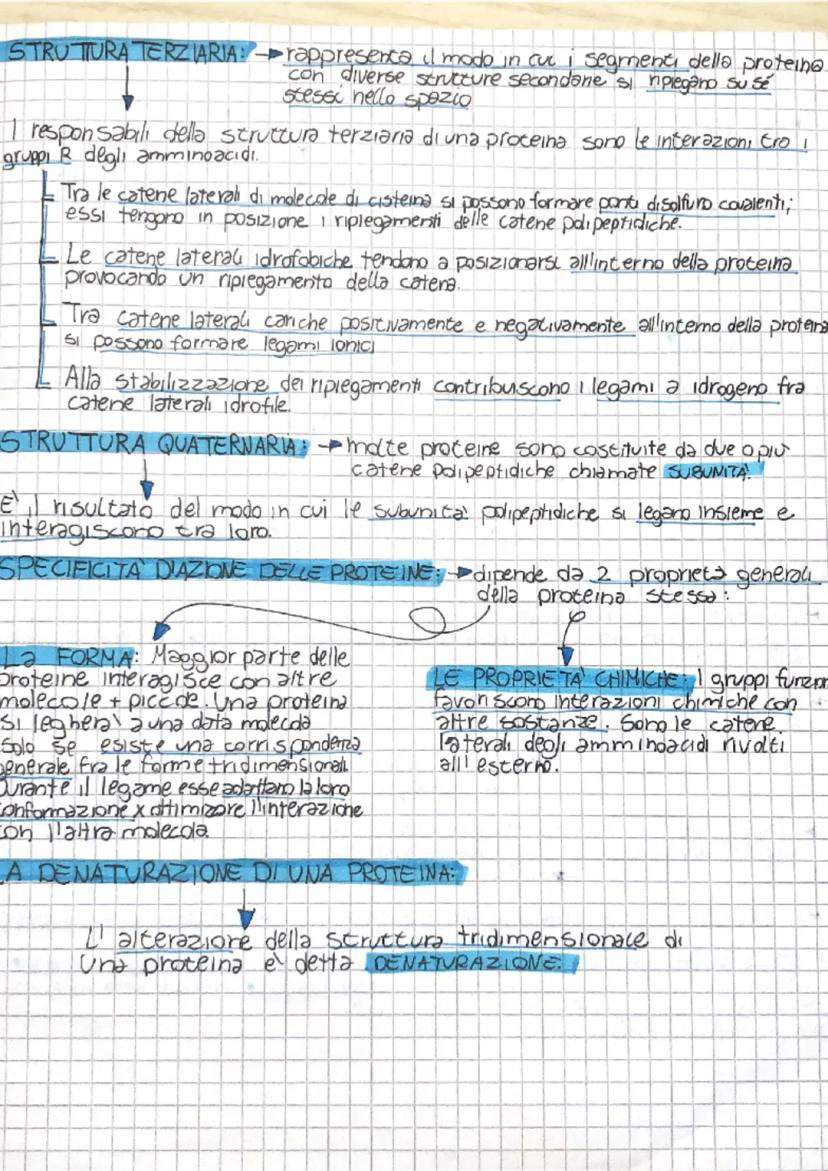 STRUTTURA TERZIARIA: → rappresenta il modo in cui i segmenti della proteina
con diverse strutture secondarie si ripiegano su sé
stessi nello spazio
I responsabili della struttura terziaria di una proteina sono le interazioni tra i
gruppi R degli amminoacidi.
Tra le catene laterali di molecole di cisteina si possono formare ponti disolfuro covalenti;
essi tengono in posizione i ripiegamenti delle catene polipeptidiche.
Le catene laterali idrofobiche tendono a posizionarsi all'interno della proteina
provocando un ripiegamento della catena.
Tra catene laterali cariche positivamente e negativamente all'interno della proteina
si possono formare legami ionici
Alla stabilizzazione dei ripiegamenti contribuiscono i legami a idrogeno fra
catene laterali idrofile.
STRUTTURA QUATERNARIA: → molte proteine sono costituite da due o più
catene polipeptidiche chiamate SUBUNITÀ.
E' il risultato del modo in cui le subunità polipeptidiche si legano insieme e
interagiscono tra loro.
SPECIFICITÀ D'AZIONE DELLE PROTEINE: → dipende da 2 proprietà generali
della proteina stessa:
La FORMA: Maggior parte delle
proteine interagisce con altre
molecole + piccole. Una proteina
si legherà a una data molecola
solo se esiste una corrispondenza
generale fra le forme tridimensionali.
Durante il legame esse adattano la loro
conformazione x ottimizzare l'interazione
con l'altra molecola.
LE PROPRIETÀ CHIMICHE: I gruppi funzion
favoriscono interazioni chimiche con
altre sostanze. Sono le catene
laterali degli amminoacidi rivolti
all'esterno.
LA DENATURAZIONE DI UNA PROTEINA:
L'alterazione della struttura tridimensionale di
una proteina è detta DENATURAZIONE.